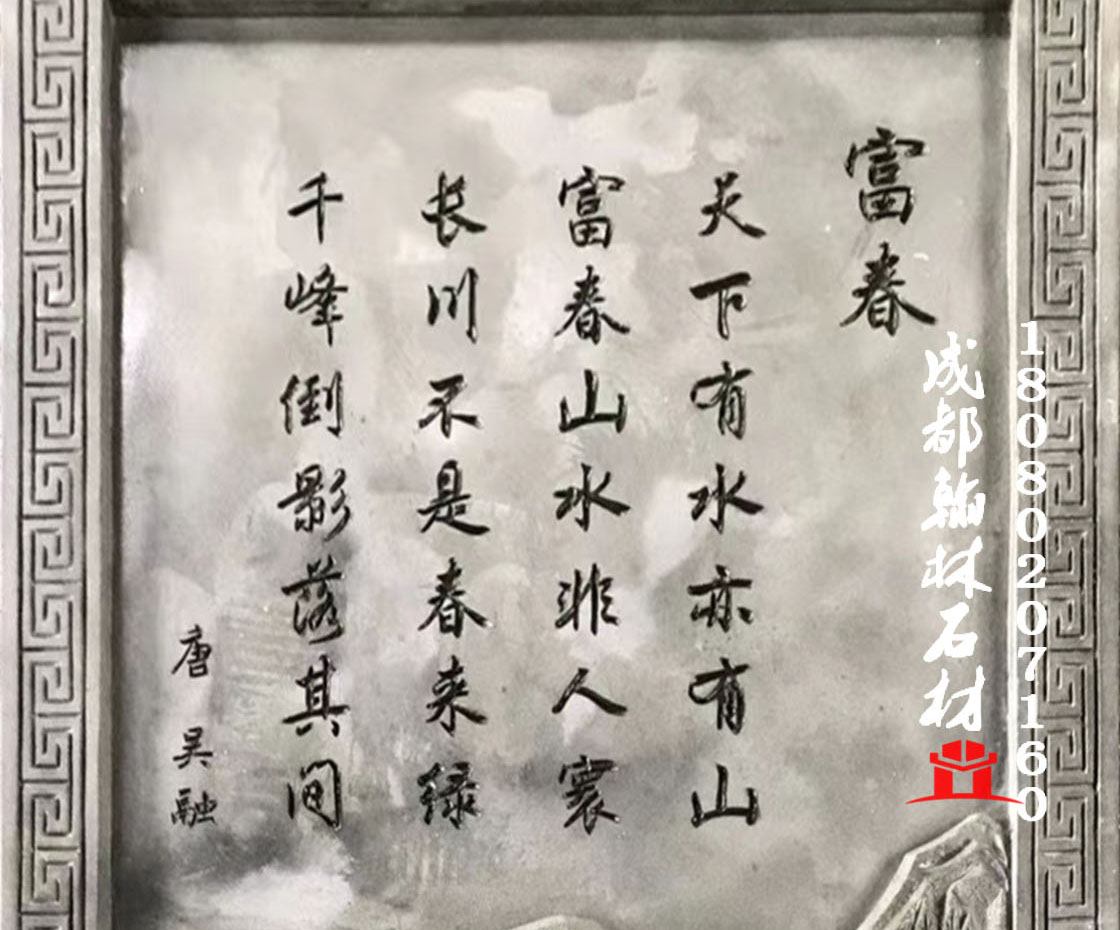 富春
天下有水亦有山
富春山水非人寰
长川不是春来绿
千峰倒影落其间
唐 吴融
成都翰林石材
18080207160